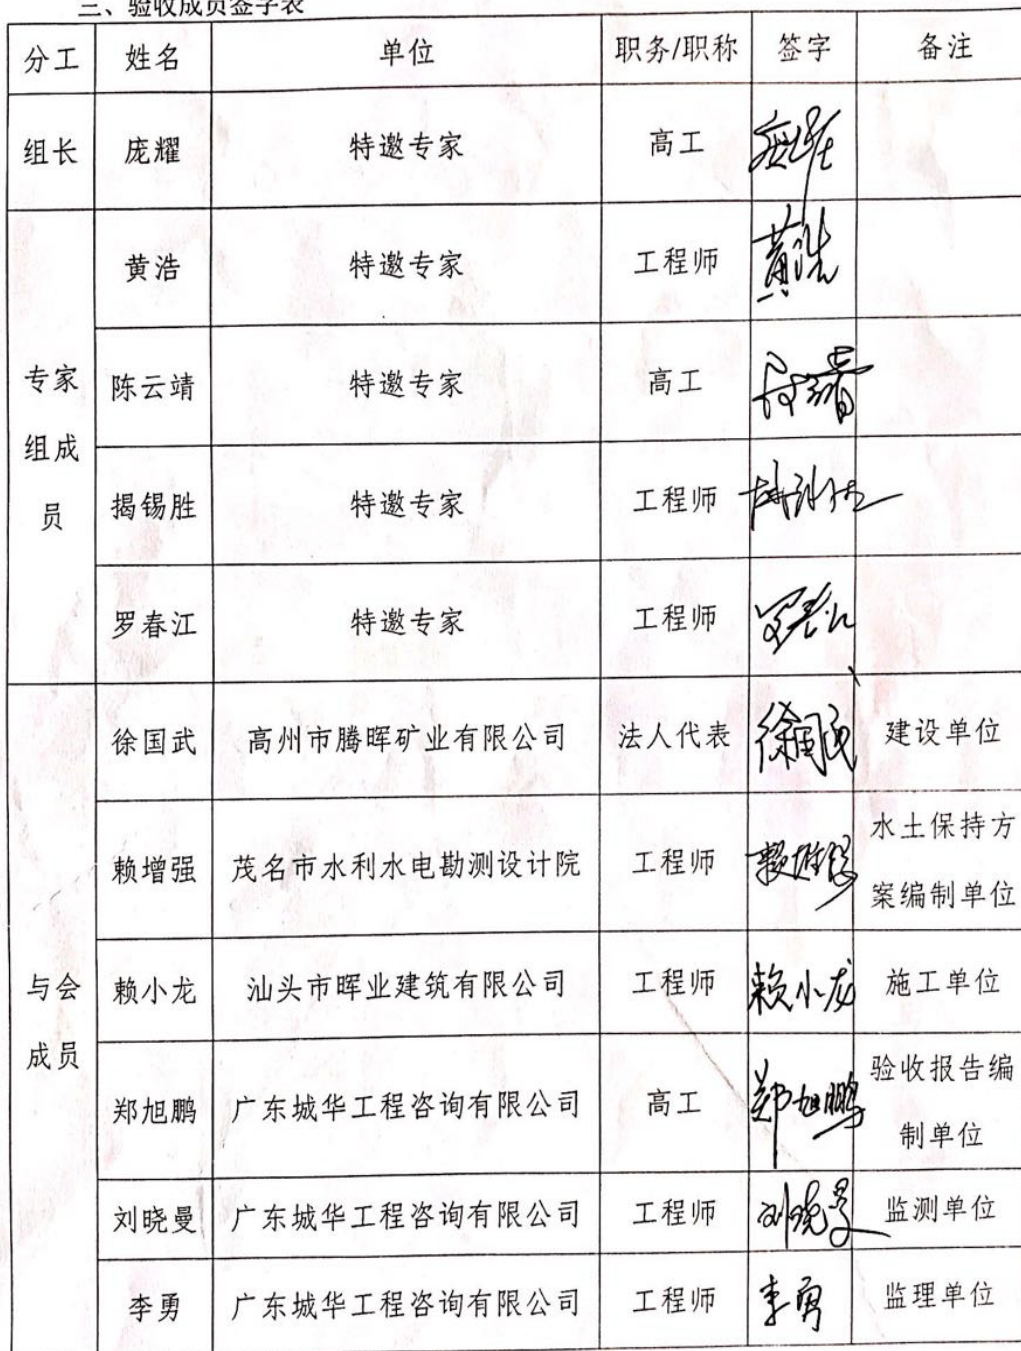 三、验收成员签字表
分工 姓名 单位 职务/职称 签字 备注
组长 庞耀 特邀专家 高工
黄浩 特邀专家 工程师 黄浩
专家
陈云靖 特邀专家 高工
组成
员
揭锡胜 特邀专家 工程师
罗春江 特邀专家 工程师
徐国武 高州市腾晖矿业有限公司 法人代表 徐国武 建设单位
赖增强 茂名市水利水电勘测设计院 工程师 赖增强 水土保持方
案编制单位
与会
成员
赖小龙 汕头市晖业建筑有限公司 工程师 赖小龙 施工单位
郑旭鹏 广东城华工程咨询有限公司 高工 郑旭鹏 验收报告编
制单位
刘晓曼 广东城华工程咨询有限公司 工程师 刘晓曼 监测单位
李勇 广东城华工程咨询有限公司 工程师 李勇 监理单位